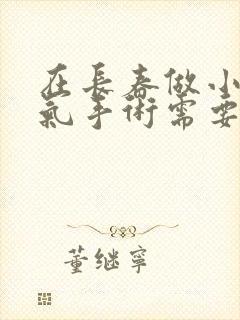 在長春做小
氣手術需要
董继寧